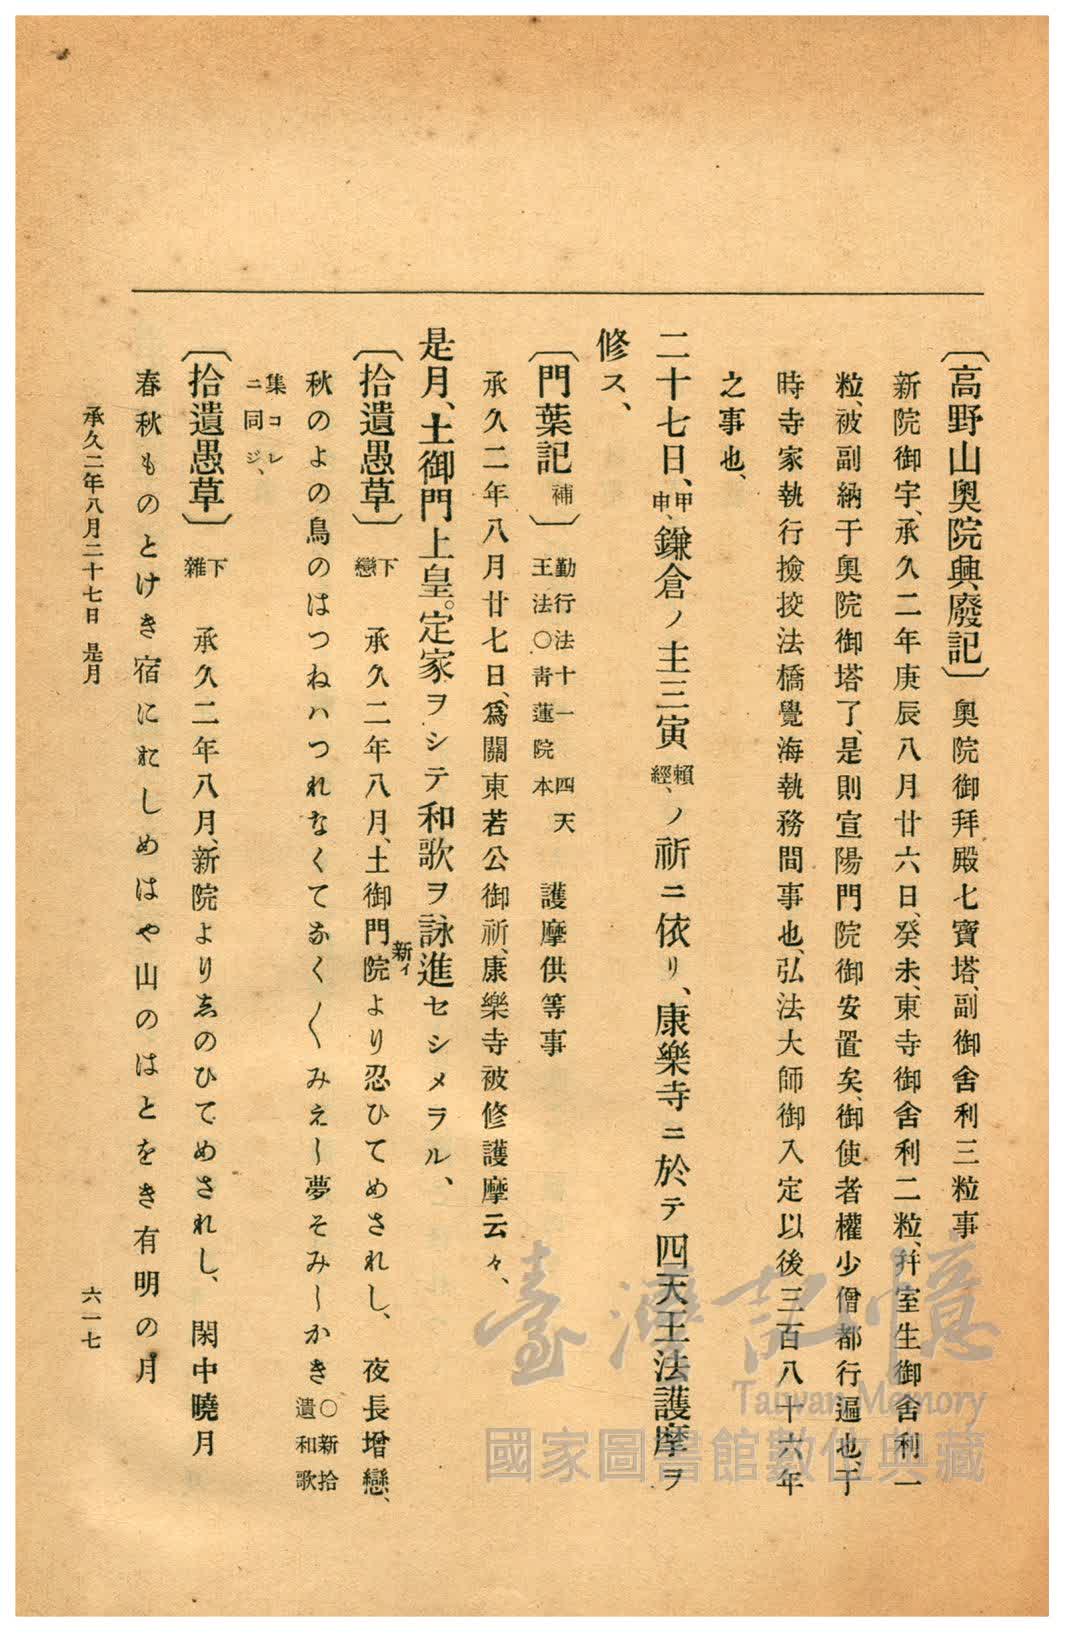 〔高野山奧院興廢記〕奧院御拜殿七寶塔、副御舍利三粒事
新院御宇、承久二年庚辰八月廿六日、癸未、東寺御舍利二粒、幷室生御舍利一
粒、被副納于奧院御塔了、是則宣陽門院御安置矣、御使者權少僧都行遍也、于
時寺家執行撿挍法橋覺海執務間事也、弘法大師御入定以後三百八十六年
之事也、
二十七日、甲申、鎌倉ノ主三寅賴經、ノ祈ニ依リ、康樂寺ニ於テ四天王法護摩ヲ
修ス、
〔門葉記補〕勤行法十一 四天王法〇靑蓮院本 護摩供等事
承久二年八月廿七日、爲關東若公御祈、康樂寺被修護摩云々、
是月、土御門上皇。定家ヲシテ和歌ヲ詠進セシメラル、
〔拾遺愚草〕下戀 承久二年八月、土御門院新イより忍ひてめされし、 夜長增戀、
秋のよの鳥のはつねハつれなくてなく〱みえし夢そみしかき〇新拾遺和歌
集コレニ同ジ、
〔拾遺愚草〕下雜 承久二年八月、新院よりゑのひてめされし、 閑中曉月
春秋ものとけき宿におしめはや山のはとをき有明の月
承久二年八月二十七日 是月
六一七
臺灣記憶
Taiwan Memory
國家圖書館數位典藏